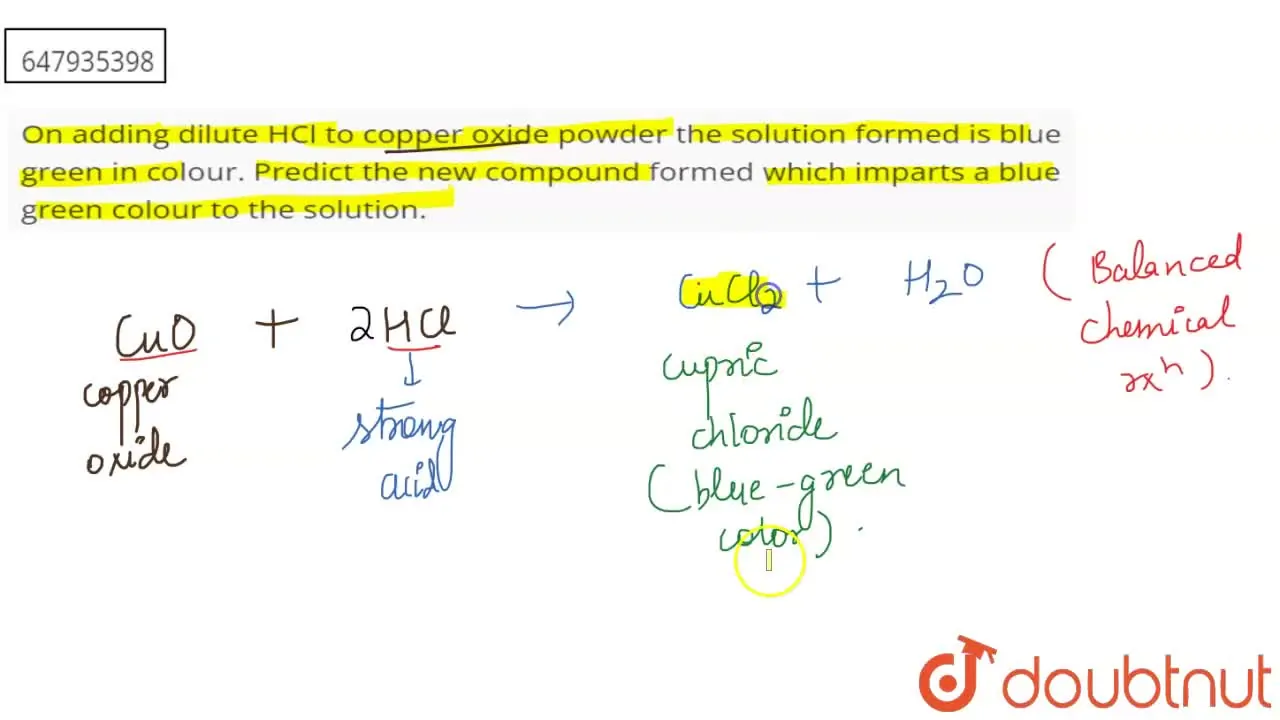 647935398
On adding dilute HCl to copper oxide powder the solution formed is blue
green in colour. Predict the new compound formed which imparts a blue
green colour to the solution.
CuO + 2HCl → CuCl2 + H2O (Balanced
chemical
rxn).
copper
oxide
strong
acid
cupric
chloride
(blue-green
color).
doubtnut